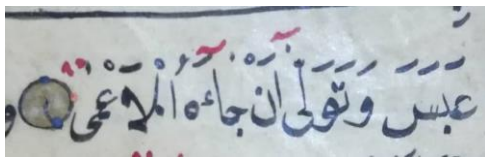 عَبَسَ وَتَوَلَّىٰ أَنْ جَاءَهُ الْأَعْمَىٰ